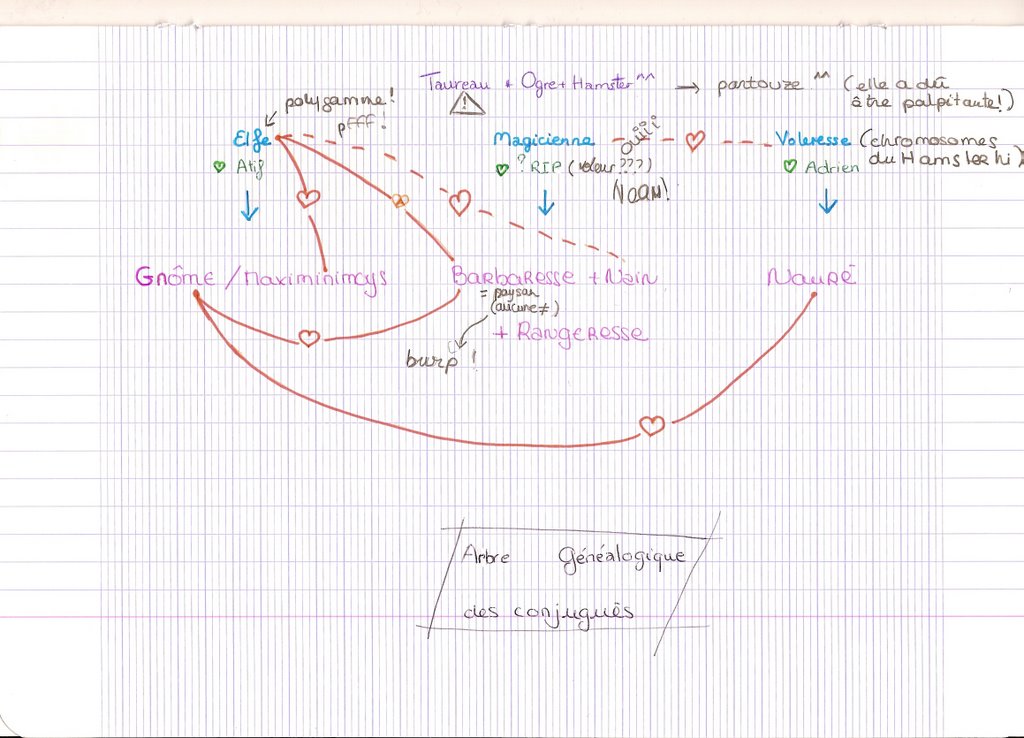 Taureau + Ogre + Hamster ^^ → partouze ^^ (elle a dû
être palpitante!)
polygamme!
pfff!
Elfe
Magicienne
ouiiii
Voleresse (chromosomes
du Hamster hi)
♥ Atif
♥ ? RIP (voleur ???)
Noam!
♥ Adrien
Gnôme / Maximinimoys
Barbaresse + Nain
Nauré
= paysan
(aucune ≠)
+ Rangeresse
burp !
Arbre Généalogique
des conjugués